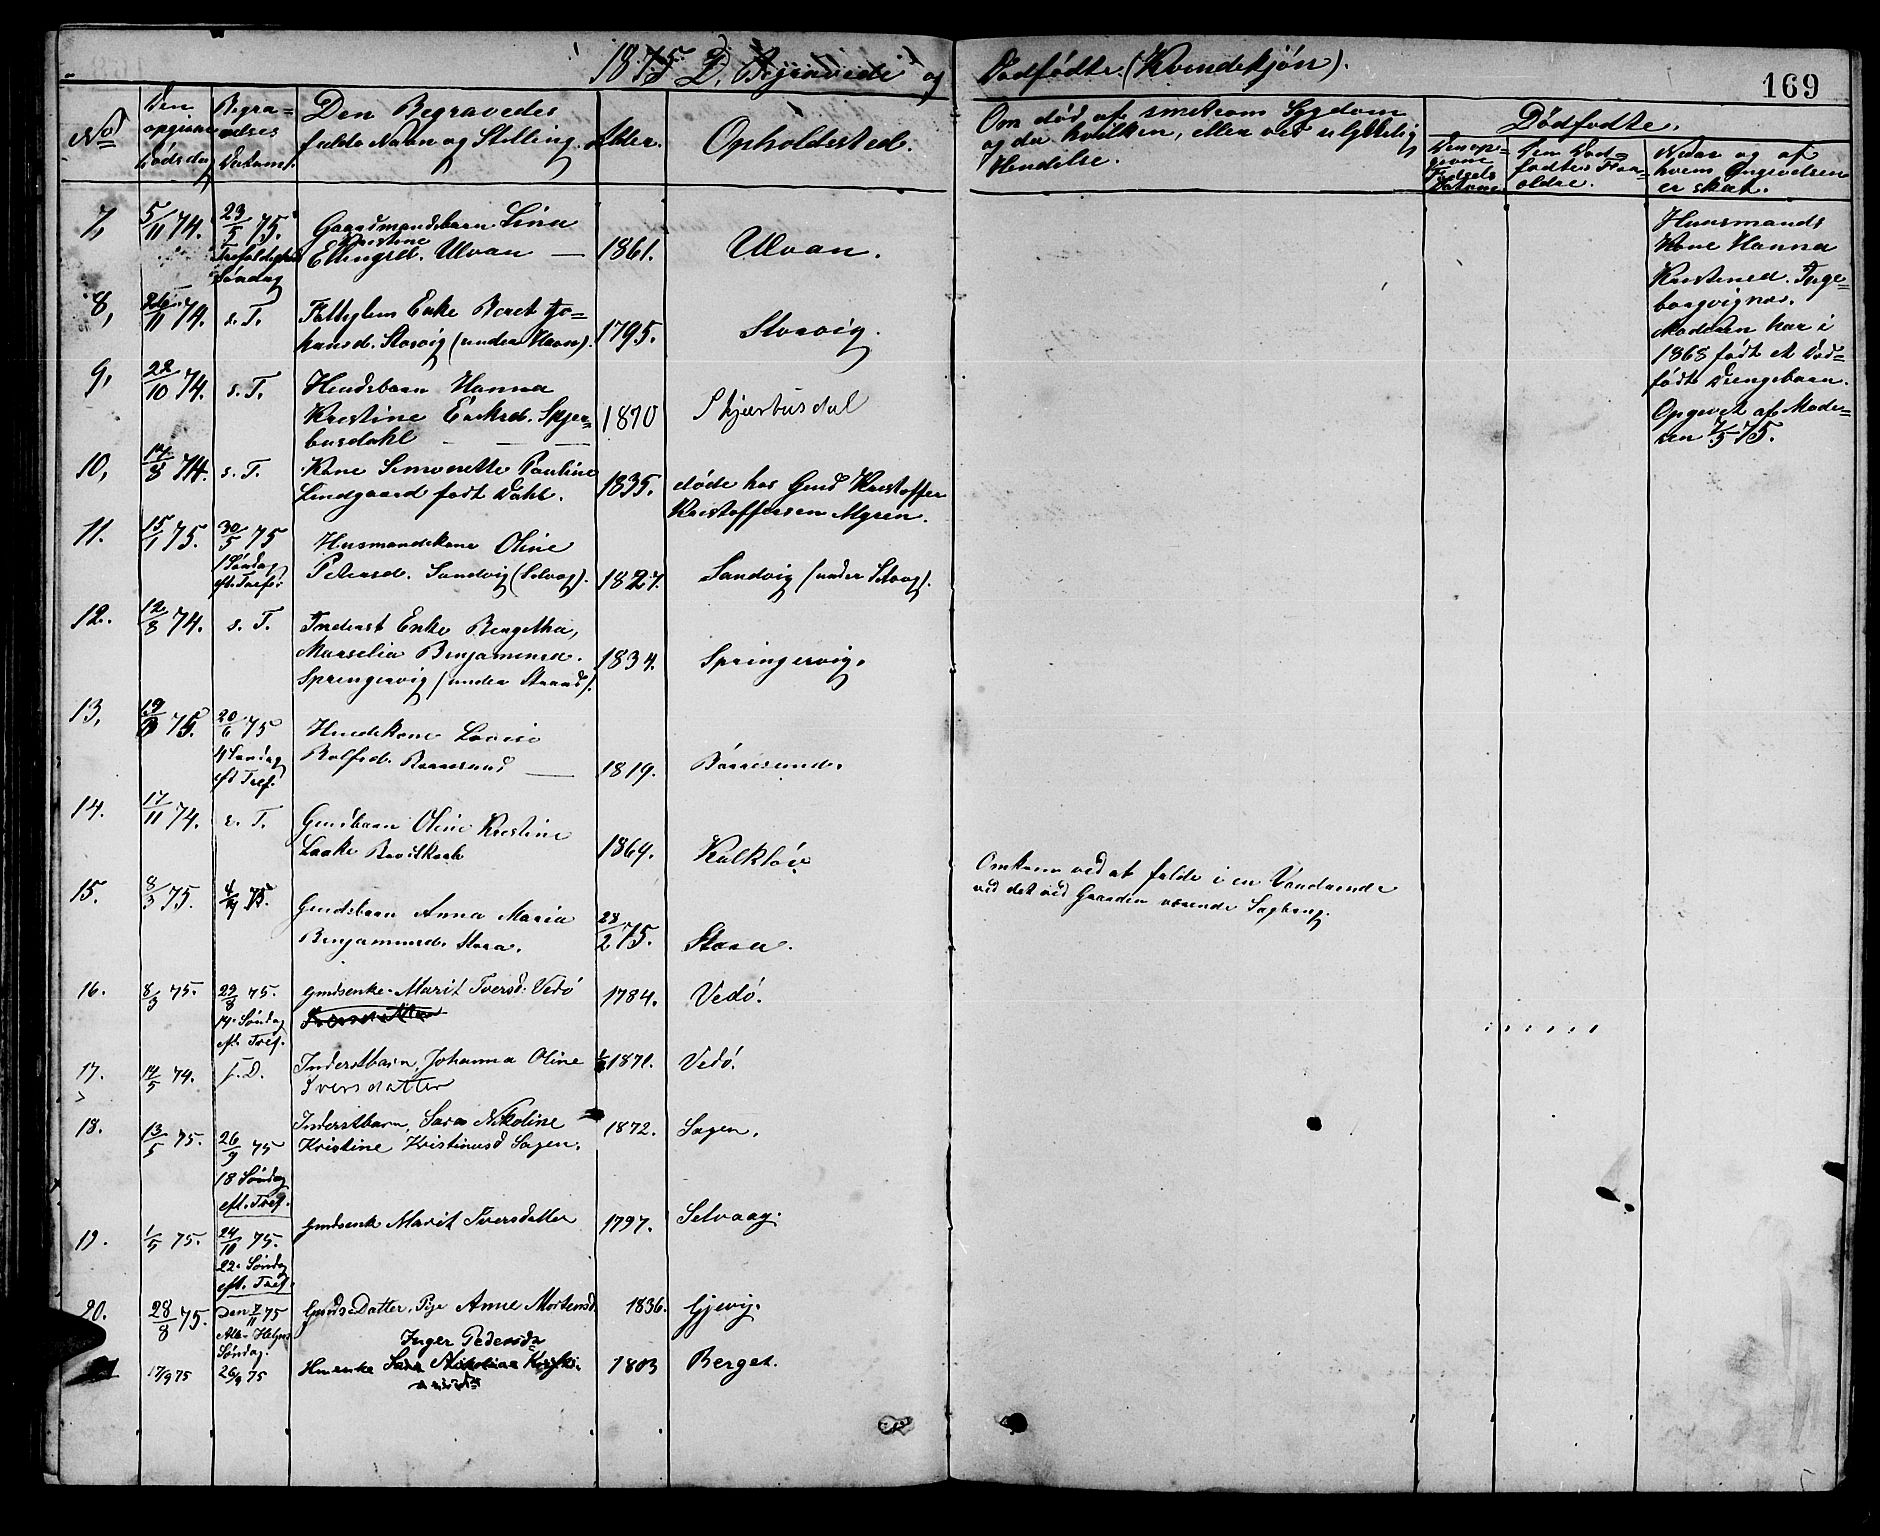 1875 D, Begravede og Dødfødte. (Kvindekjøn).
169
No
Den opgivne Dødsdag
Begravelses Datum.
Den Begravedes fulde Navn og Stilling.
Alder.
Opholdssted.
Om død af smitsom Sygdom og da hvilken, eller ved ulykkelig Hendelse.
Dødfødte.
Den opgivne Fødsels Datum
Den Dødfødtes Foraldre.
Naar og af hvem Opgivelsen er skeet.
7, 5/11 74. 23/5 75. Gaardmandsbarn Lina
Trefoldigheds Søndag Kristine Ellingsd. Ulvan — 1861. Ulvan.
8, 26/11 74. s. T. Fattiglem Enke Beret Jo-
hansd. Storvig (under Havn). 1795. Storvig.
9, 22/10 74. s. T. Husmbarn Hanna
Kristine Eriksd. Skjær-
busdahl 1870 Skjærbusdal
10, 14/8 74. s. T. Kone Simonette Pauline
Lindgaard født Dahl. 1835. døde hos Gmd Kristoffer
Kristoffersen Myren.
11. 15/1 75. 30/5 75 Husmandskone Oline
1 Søndag eft. Tref. Petersd. Sandvig (Selvag). 1827. Sandvig (under Selvag).
12. 12/8 74. s. T. Inderst Enke Bergitha,
Marselia Benjaminsd.
Springervig (under Strand). 1834. Springervig.
13, 19/3 75. 20/6 75 Lovise
4 Søndag eft Tref. Rolfsd. — 1819.
14. 17/11 74. s. T. Gmdbarn Oline Kristine
1864.
15. 8/3 75. 4/7 75. Gmdsbarn Anna Maria
Benjaminsd. Stora. 28/2 75. Stora.
Omkom ved at falde i en Vandrende
ved det ved Gaarden værende Sagbrug.
16. 8/3 75. 29/8 75. Gmdsenke Marit Iversd: Vedø 1784. Vedø.
14. Søndag eft. Tref.
17. 14/5 74. s. D. Inderstbarn, Johanna Oline 1871. Vedø.
Iversdatter
18. 13/5 75. 26/9 75 Inderstbarn, Sara Nikoline
Kristine Kristinusd Sagen. 1872. Sagen.
18 Søndag eft. Tref.
19. 1/5 75. 24/10 75. Gmdsenke Marit Iversdatter 1797. Selvaag.
22. Søndag eft. Tref.
20. 28/8 75. Den 7/11 75 Gmds Datter, Pige Anne Mortensd. 1836. Gjevig.
Alle Helgens Søndag.
Inger Pedersd
17/9 75 26/9 75 Hmenke 1803 Berget.
Huusmands
Kone Hanna
Kristined. Inge-
borgvignes.
Moderen har i
1868 født et Død-
født Drengebarn.
Opgivet af Mode-
ren 7/5 75.